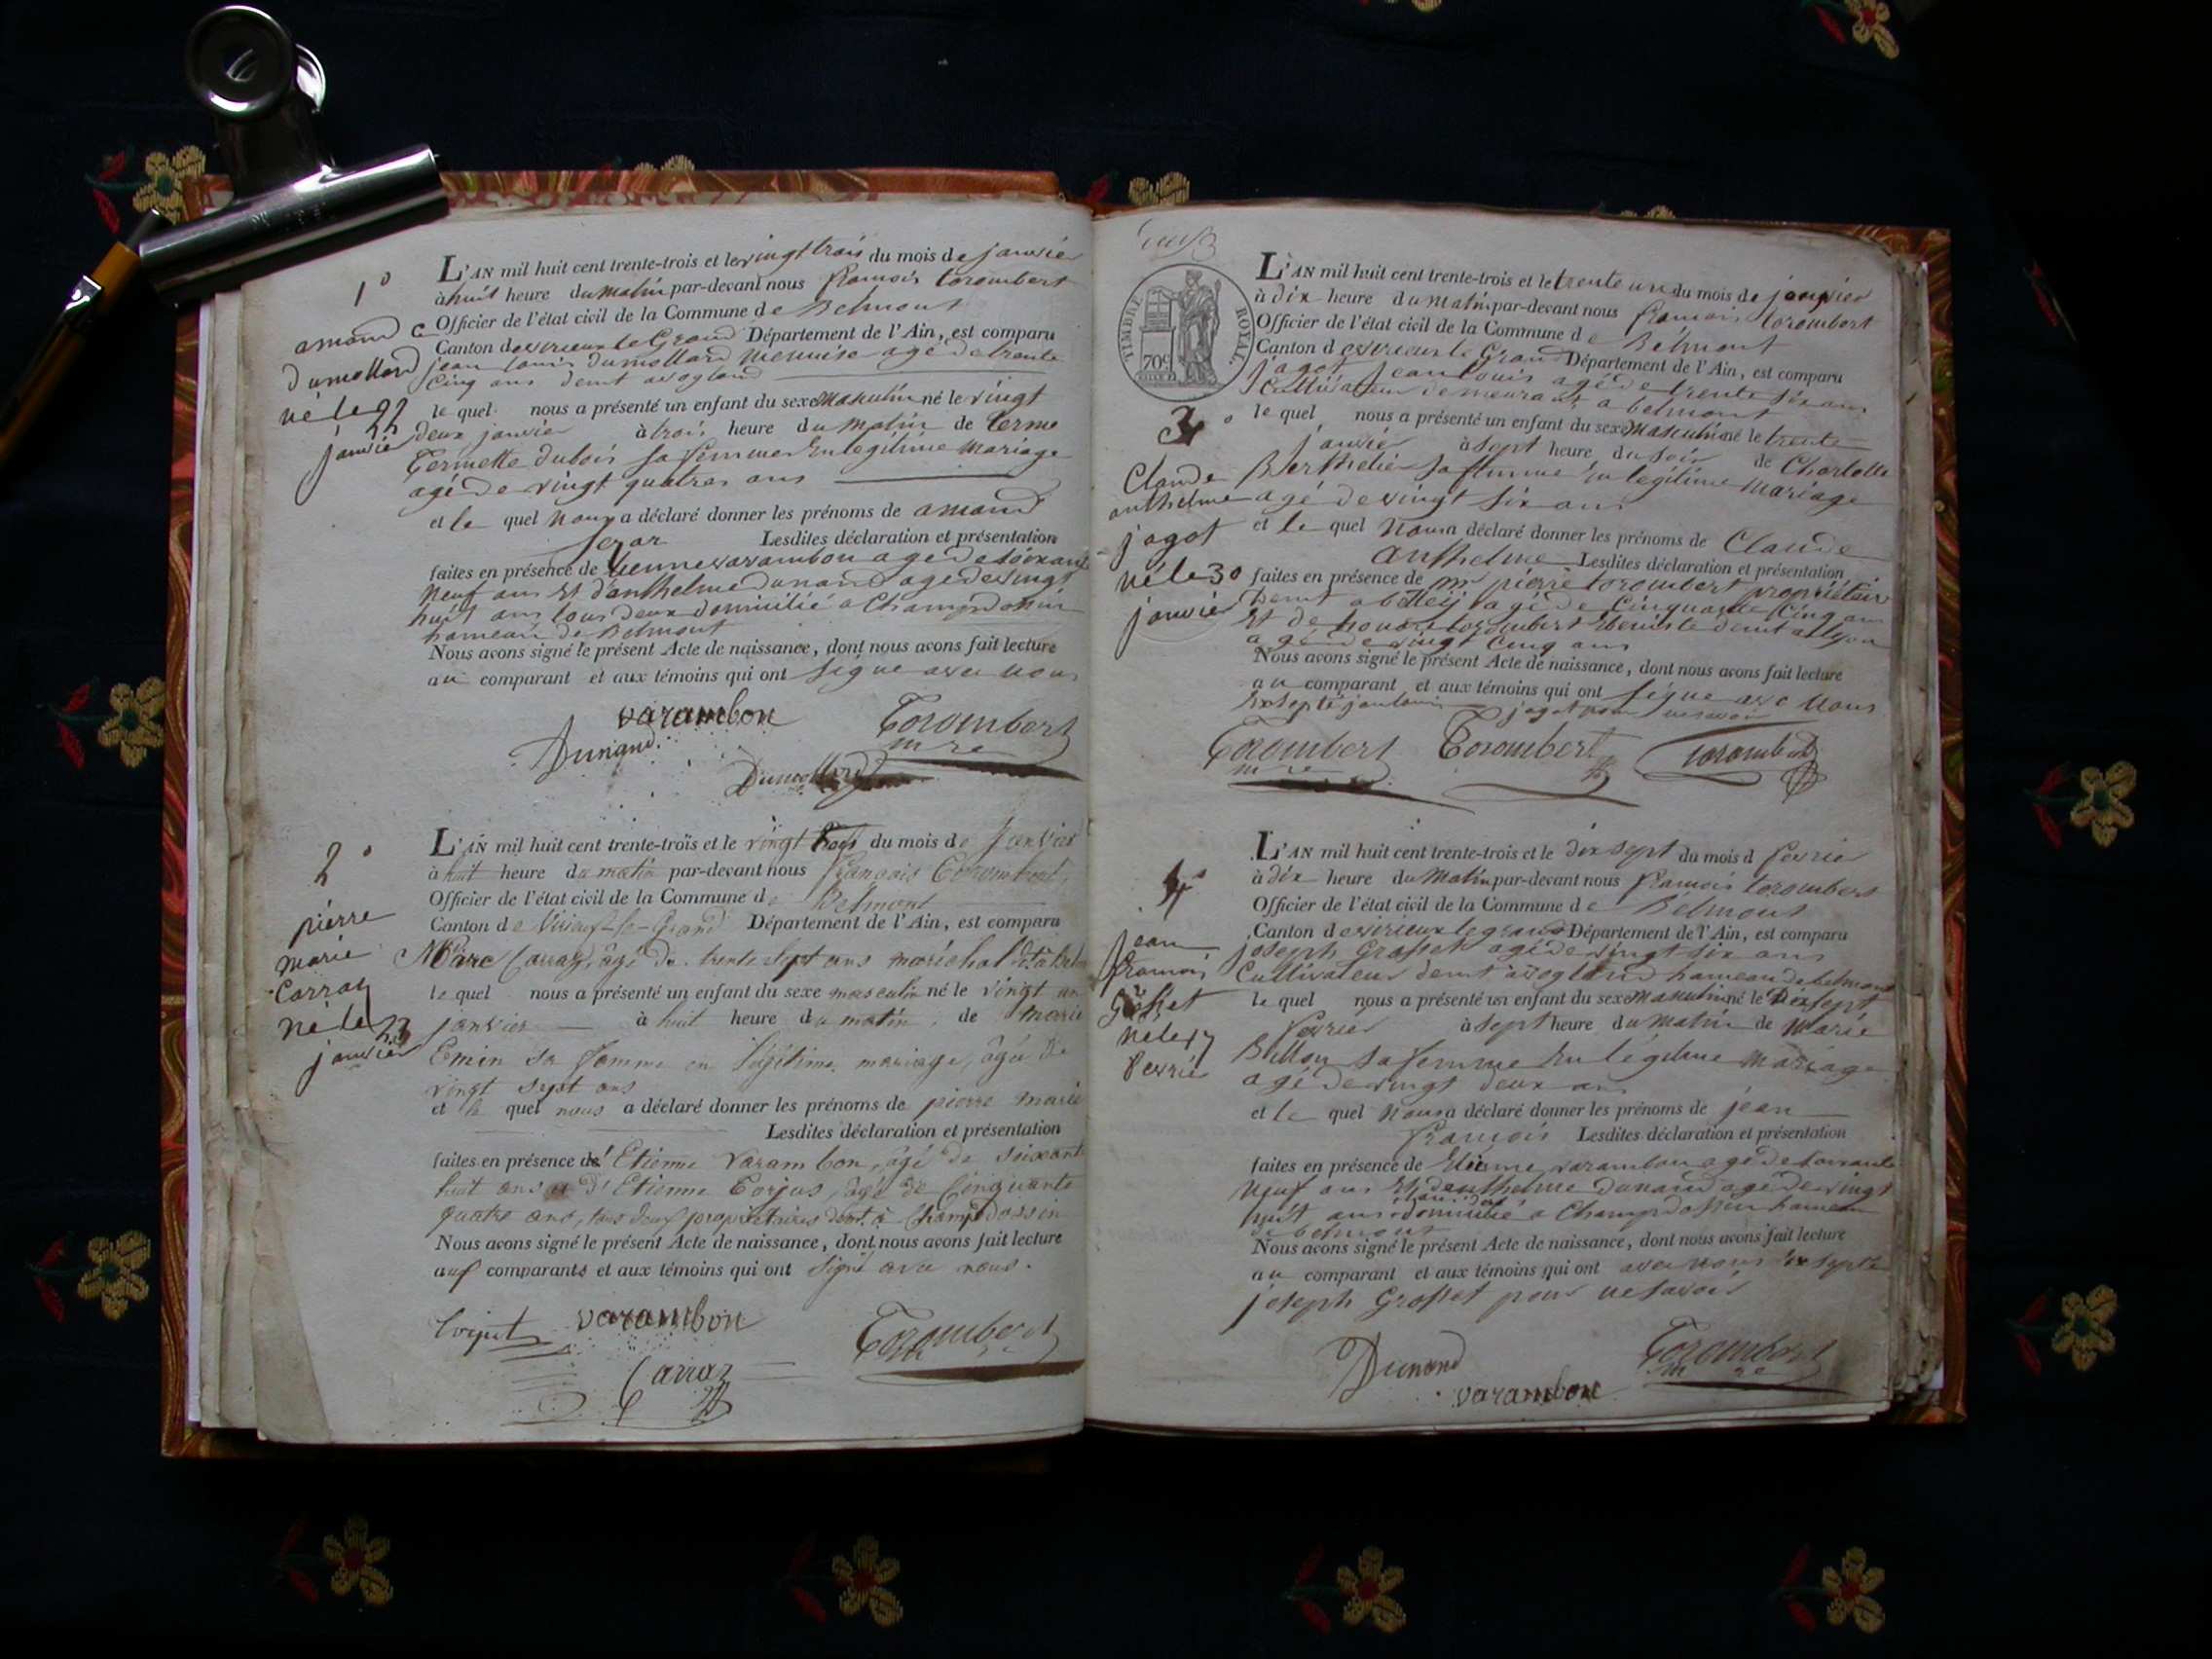 1°
amand
Dumollard
né le 22
janvier
L'AN mil huit cent trente-trois et le vingt trois du mois de janvier
à huit heure du Matin par-devant nous françois torombert
Officier de l'état civil de la Commune de Belmont
Canton de virieux le Grand Département de l'Ain, est comparu
jean louis dumollard agé de trente
cinq ans demt
le quel nous a présenté un enfant du sexe Masculin né le vingt
deux janvier à trois heure du Matin de
dubois sa femme En legitime Mariage
agé de vingt quatres ans
et le quel nous a déclaré donner les prénoms de amand
Lesdites déclaration et présentation
faites en présence de varambon agé de soixante
neuf ans Et d'anthelme dunand agé de vingt
huit ans tous deux domicilié a Champdossin
hameau de Belmont
Nous avons signé le présent Acte de naissance, dont nous avons fait lecture
au comparant et aux témoins qui ont signe avec nous
varambon Torombert
Dunand mre
Dumollard
2°
pierre
marie
Carraz
né le
janvier
L'AN mil huit cent trente-trois et le vingt trois du mois de Janvier
à huit heure du matin par-devant nous François Torombert
Officier de l'état civil de la Commune de Belmont
Canton de Virieux-le-Grand Département de l'Ain, est comparu
Marc Carraz, âgé de trente sept ans maréchal
le quel nous a présenté un enfant du sexe masculin né le vingt
janvier à huit heure du matin de Marie
Emin sa femme en légitime mariage, âgée de
vingt sept ans
et le quel nous a déclaré donner les prénoms de pierre marie
Lesdites déclaration et présentation
faites en présence de Etienne Varambon, âgé de soixante
huit ans et d'Etienne âgé de Cinquante
quatre ans, tous deux propriétaires demt à Champdossin
Nous avons signé le présent Acte de naissance, dont nous avons fait lecture
aux comparants et aux témoins qui ont signé avec nous.
varambon
Torombert
Carraz
TIMBRE ROYAL
70c
3°
Claude
anthelme
jagot
né le 30
janvier
L'AN mil huit cent trente-trois et le trente un du mois de janvier
à dix heure du Matin par-devant nous françois torombert
Officier de l'état civil de la Commune de Belmont
Canton de virieux le Grand Département de l'Ain, est comparu
jagot jean louis agé de trente six ans
Cultivateur demeurant a belmont
le quel nous a présenté un enfant du sexe Masculin né le trente
janvier à sept heure du soir de Charlotte
Berthelier sa femme En legitime Mariage
agé de vingt six ans
et le quel nous a déclaré donner les prénoms de Claude
anthelme Lesdites déclaration et présentation
faites en présence de mr pierre torombert propriétaire
demt a belleij agé de Cinquante Cinq ans
Et de honoré torombert Ebeniste demt a lyon
agé de vingt Cinq ans
Nous avons signé le présent Acte de naissance, dont nous avons fait lecture
au comparant et aux témoins qui ont signe avec Nous
Torombert Torombert torombert
mre
4°
jean
françois
Grosset
né le 17
fevrie
L'AN mil huit cent trente-trois et le dix sept du mois d fevrier
à dix heure du Matin par-devant nous françois torombert
Officier de l'état civil de la Commune de Belmont
Canton de virieux le grand Département de l'Ain, est comparu
joseph Grosset agé de vingt six ans
Cultivateur demt hameau de belmont
le quel nous a présenté un enfant du sexe Masculin né le Dix sept
fevrier à sept heure du Matin de Marie
Billon sa femme En légitime Mariage
agé de vingt deux ans
et le quel Nous a déclaré donner les prénoms de jean
françois Lesdites déclaration et présentation
faites en présence de Etienne varambon agé de soixante
neuf ans Et d'anthelme dunand agé de vingt
huit ans domicilié a Champdossin hameau
de belmont
Nous avons signé le présent Acte de naissance, dont nous avons fait lecture
au comparant et aux témoins qui ont avec nous Excepté
joseph Grosset pour ne savoir
Dunand Torombert
varambon mre